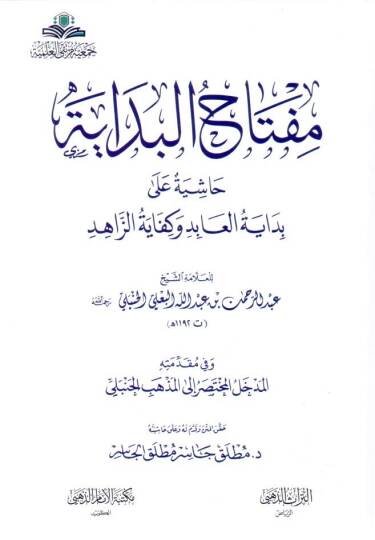 جمعية مرتقى العلمية
مفتاح البداية
حاشية على
بداية العابد وكفاية الزاهد
للعلامة الشيخ
عبد الرحمن بن عبد الله البعلي الحنبلي رحمه الله
(ت ١١٩٢هـ)
وفي مقدمته
المدخل المختصر إلى المذهب الحنبلي
حقق المتن وقدم له وعلق حاشيته
د. مطلق جاسر مطلق الجاسر
التراث الذهبي
الرياض
مكتبة الإمام الذهبي
الكويت